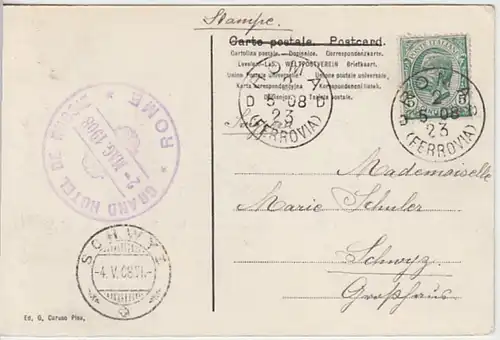 Stampe.
Carte postale. Postcard.
Cartolina postale. Dopisnice. Correspondenzkarte.
WELTPOSTVEREIN Briefkaart.
Union Postale Universelle. Union postale universelle.
Karta korespondencyjna
Tarjeta postale.
POSTE ITALIANE
5 5
ROMA
2
D 5-08 D
23
(FERROVIA)
ROMA
2
D 5-08
23
(FERROVIA)
ROME
GRAND HOTEL DE RUSSIE
2 MAG. 1908
SCHWYZ
-4.V.08.VI.-
Mademoiselle
Marie Schuler
Schwyz
Großhaus.
Ed. G. Caruso Pisa,